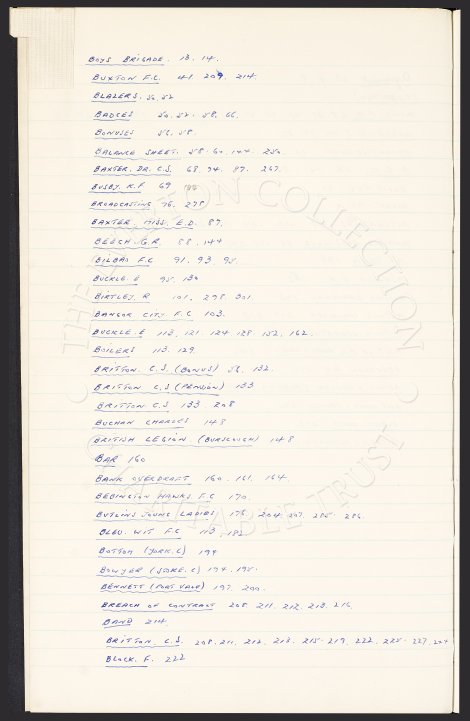 BOYS BRIGADE. 13. 14.
BUXTON F.C. 41. 209. 214
BLAZERS. 50. 52
BADGES 50. 52. 58. 66.
BONUSES 56. 58.
BALANCE SHEET. 58. 60. 144. 250
BAXTER. DR. C.S. 68. 74. 87. 267
BUSBY. K.F 69
BROADCASTING 76. 278
BAXTER. MISS. E.D. 87.
BEECH. G.R. 88. 144
BILBAO F.C 91. 93. 95.
BUCKLE. E 95. 130
BIRTLEY. R 101. 298. 301
BANGOR CITY. F.C 103.
BUCKLE. E 113. 121. 124. 128. 152. 162.
BOILERS 113. 129.
BRITTON. C.S. (BONUS) 56. 132.
BRITTON C.S (PENSION) 133
BRITTON C.S. 133. 208
BUCHAN CHARLES 148
BRITISH LEGION (BURSCOUGH) 148
BAR 160
BANK OVERDRAFT 160. 161. 164
BEBINGTON HAWKS F.C 170.
BUTLINS YOUNG LADIES 176. 204. 207. 285. 286.
BLEU. WIT F.C 113. 182
BOTTOM (YORK. C) 194
BOWYER (STOKE. C) 194. 195.
BENNETT (PORT VALE) 197. 200.
BREACH OF CONTRACT 208. 211. 212. 213. 216.
BAND 214
BRITTON C.S. 208. 211. 212. 213. 215. 219. 222. 225. 227. 224
BLOCK. F. 222
THE EVERTON COLLECTION
CHARITABLE TRUST